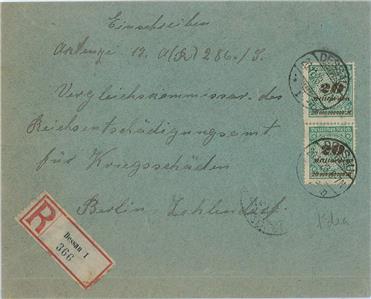 Einschreiben
Anlage 12. A(R) 286./J.
Vergleichskommissar des
Reichsentschädigungsamt
für Kriegsschäden
Berlin
Deutsches Reich
20
Milliarden
20
Milliarden
R
Dessau 1
366